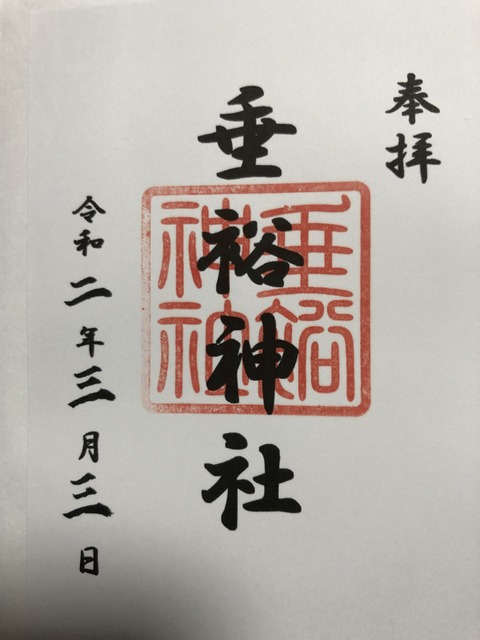 奉拝
垂裕神社
垂裕
神社
令和二年三月三日